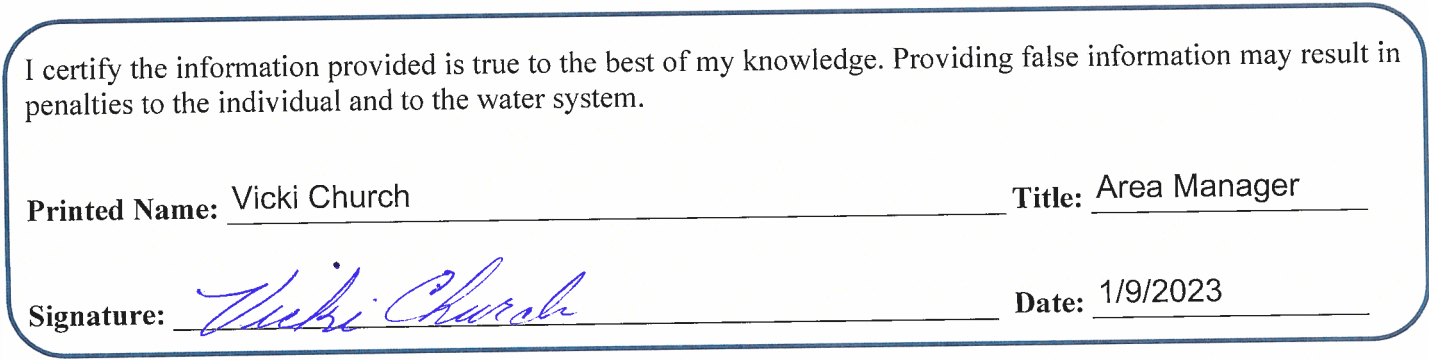 I certify the information provided is true to the best of my knowledge. Providing false information may result in
penalties to the individual and to the water system.
Printed Name: Vicki Church Title: Area Manager
Signature: Vicki Church Date: 1/9/2023